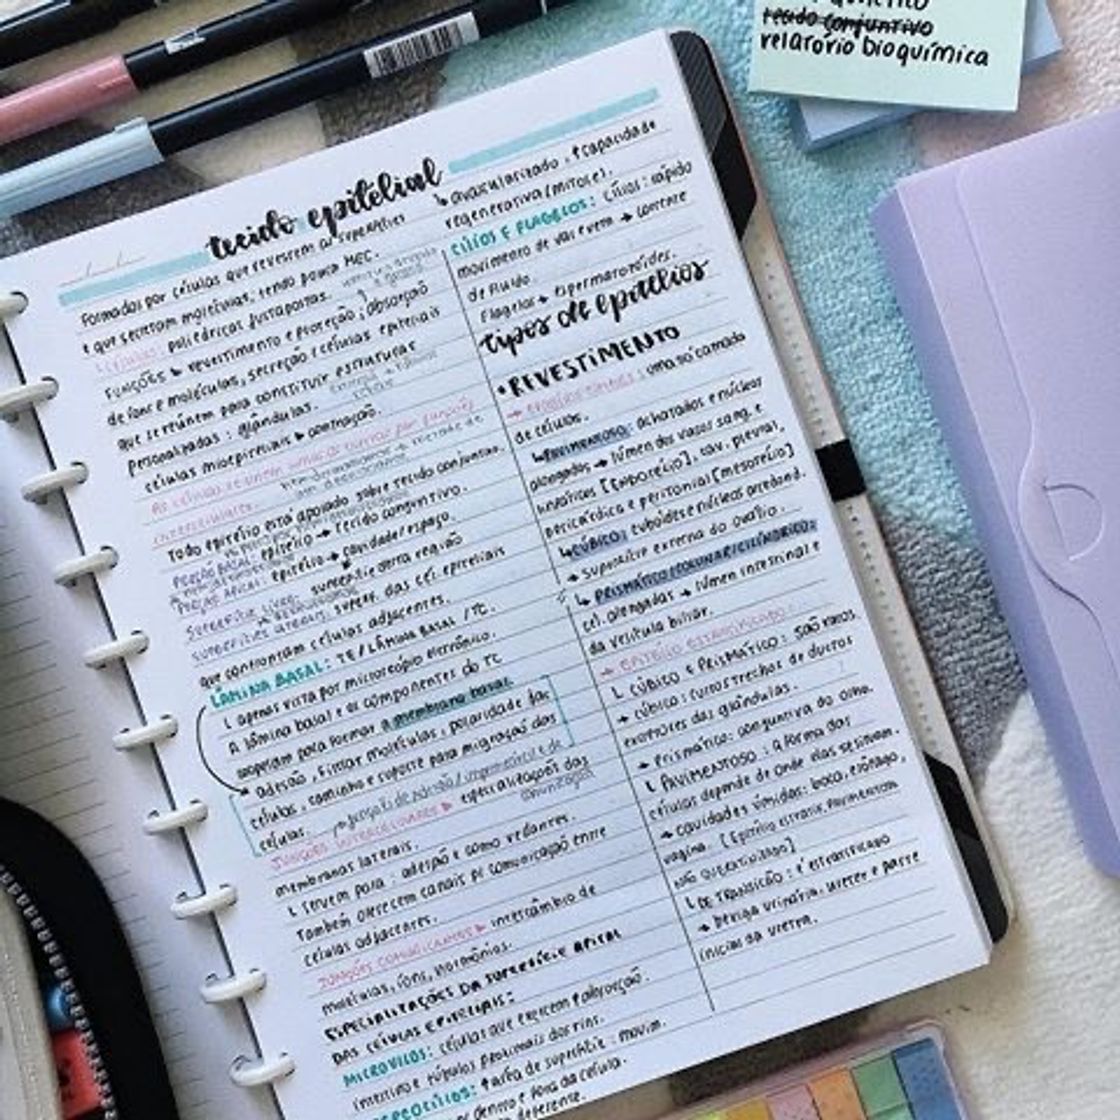 tecido conjuntivo
relatório bioquímica
tecido epitelial
formados por células que revestem as superfícies
e que secretam moléculas, tendo pouca MEC.
células: poliédricas justapostas.
FUNÇÕES revestimento e proteção, absorção
de íons e moléculas, secreção e células epiteliais
que se reúnem para constituir estruturas
personalizadas: glândulas.
células mioepiteliais contração.
Todo epitélio está apoiado sobre tecido conjuntivo.
PORÇÃO BASAL: epitélio → tecido conjuntivo.
PORÇÃO APICAL: epitélio → cavidade/espaço.
SUPERFÍCIE LIVRE: superfície desta região
SUPERFÍCIES LATERAIS: superf. das cél. epiteliais
que confrontam células adjacentes.
LÂMINA BASAL: TE/LÂMINA BASAL/TC.
apenas vista por microscópio eletrônico.
A lâmina basal e os componentes do TC
para formar a membrana basal.
adesão, filtrar moléculas, polaridade das
células, caminho e suporte para migração das
células.
JUNÇÕES INTERCELULARES especializações das
membranas laterais.
servem para: adesão e como vedantes.
Também oferecem canais p/ comunicação entre
células adjacentes.
JUNÇÕES COMUNICANTES intercâmbio de
moléculas, íons, hormônios.
ESPECIALIZAÇÕES DA SUPERFÍCIE APICAL
DAS CÉLULAS EPITELIAIS:
MICROVILOS: células que exercem absorção.
intestino e túbulos proximais dos rins.
ESTEREOCÍLIOS: ↑ área de superfície: movim.
dentro e fora da célula.
avascularizado, ↑ capacidade
regenerativa (mitose).
CÍLIOS E FLAGELOS: Cílios: rápido
movimento de vai e vem → corrente
de fluido.
Flagelos → espermatozóides.
tipos de epitélios
• REVESTIMENTO
→ EPITÉLIO SIMPLES: uma só camada
de células.
PAVIMENTOSO: achatados e núcleos
alongados → lúmen dos vasos sang. e
linfáticos [ENDOTÉLIO], cav. pleural,
pericárdica e peritonial [MESOTÉLIO]
CÚBICO: cubóides e núcleos arredond.
→ superfície externa do ovário.
PRISMÁTICO/COLUNAR/CILÍNDRICO:
cél. alongadas → lúmen intestinal e
da vesícula biliar.
→ EPITÉLIO ESTRATIFICADO:
CÚBICO E PRISMÁTICO: são raros.
→ cúbico: curtos trechos de ductos
excretores das glândulas.
→ Prismático: conjuntiva do olho.
PAVIMENTOSO: a forma das
células depende de onde elas se situam.
→ cavidades úmidas: boca, esôfago,
vagina. [Epitélio estratif. pavimentoso
NÃO QUERATINIZADO]
DE TRANSIÇÃO: é estratificado
→ bexiga urinária, ureter e parte
inicial da uretra.